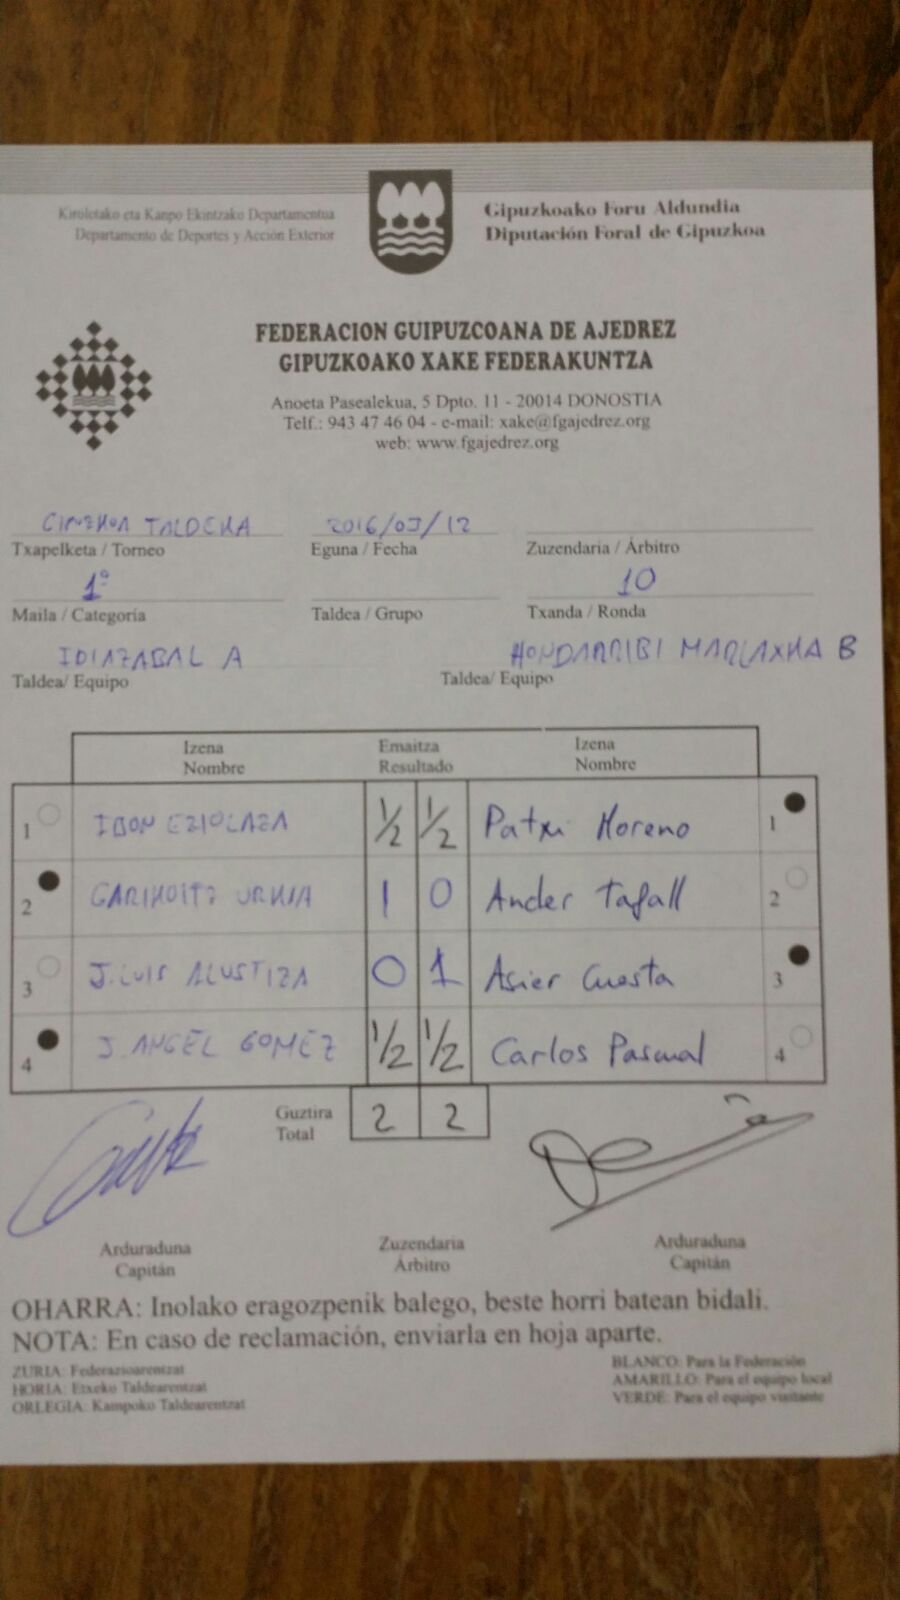 Kirolotako eta Kanpo Ekintzako Departamentua
Departamento de Deportes y Acción Exterior
Gipuzkoako Foru Aldundia
Diputación Foral de Gipuzkoa
FEDERACION GUIPUZCOANA DE AJEDREZ
GIPUZKOAKO XAKE FEDERAKUNTZA
Anoeta Pasealekua, 5 Dpto. 11 - 20014 DONOSTIA
Telf.: 943 47 46 04 - e-mail: xake@fgajedrez.org
web: www.fgajedrez.org
TALDEKA 2016/03/12
Txapelketa / Torneo Eguna / Fecha Zuzendaria / Árbitro
1º 10
Maila / Categoría Taldea / Grupo Txanda / Ronda
IDIAZABAL A HONDARRIBI MARLAXKA B
Taldea/ Equipo Taldea/ Equipo
Izena Emaitza Izena
Nombre Resultado Nombre
1 IBON EZIOLAZA 1/2 1/2 Patxi Moreno 1
2 GARIKOITZ URKIA 1 0 Ander Tafall 2
3 J. LUIS ALUSTIZA 0 1 Asier Cuesta 3
4 J. ANGEL GOMEZ 1/2 1/2 Carlos Pascual 4
Guztira
Total 2 2
Arduraduna Zuzendaria Arduraduna
Capitán Árbitro Capitán
OHARRA: Inolako eragozpenik balego, beste horri batean bidali.
NOTA: En caso de reclamación, enviarla en hoja aparte.
ZURIA: Federazioarentzat
HORIA: Etxeko Taldearentzat
ORLEGIA: Kanpoko Taldearentzat
BLANCO: Para la Federación
AMARILLO: Para el equipo local
VERDE: Para el equipo visitante